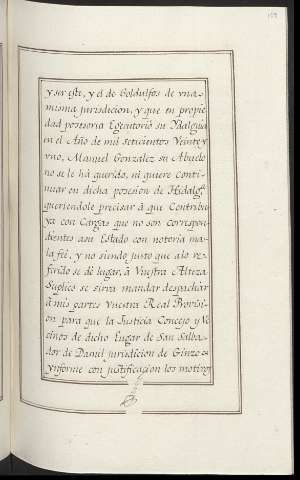 y ser este, y el de Goldulfos de vna
misma jurisdicion, y que en propie
dad posesoria Egecutorió su Ydalguia
en el Año de mil setecientos Veinte y
vno, Manuel Gonzalez su Abuelo
no se le há querido, ni quiere conti
nuar en dicha posesion de Hidalgo
queriendole precisar á que Contribu
ya con Cargas que no son correspon
dientes asu Estado con notoria ma
la feé, y no siendo justo que alo re-
ferido se dé lugar, á Vuestra Alteza
Suplico se sirva mandar despachar
á mis partes Vuestra Real Provisi
on para que la Justicia Concejo y Ve
cinos de dicho Lugar de San Salba
dor de Damil jurisdicion de Ginzo
Ynforme con justificacion los motivos